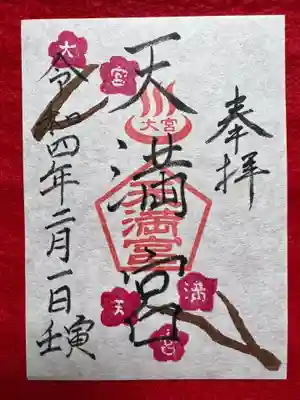 奉拝
天満宮
大宮
天満宮
大宮
天満宮
令和四年二月一日
壬寅